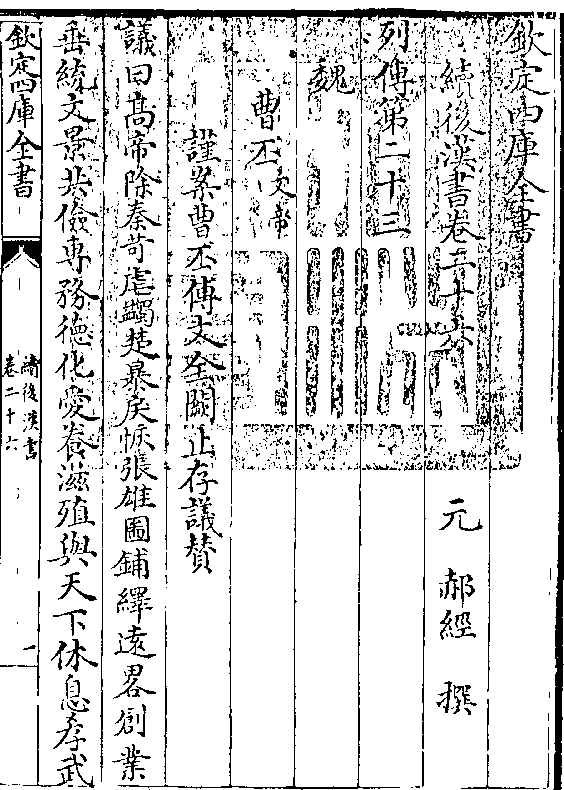 欽定四庫全書
續後漢書卷二十六
元 郝經 撰
列傳第二十三
魏
曹丕 文帝
謹案曹丕傳太全闕止存議贊
議曰髙帝除秦苛虐蠲楚暴戾恢張雄圖鋪繹遠畧創業
垂統文景共儉專務徳化愛養滋殖與天下休息孝武
欽定四庫全書
續後漢書
卷二十六
一